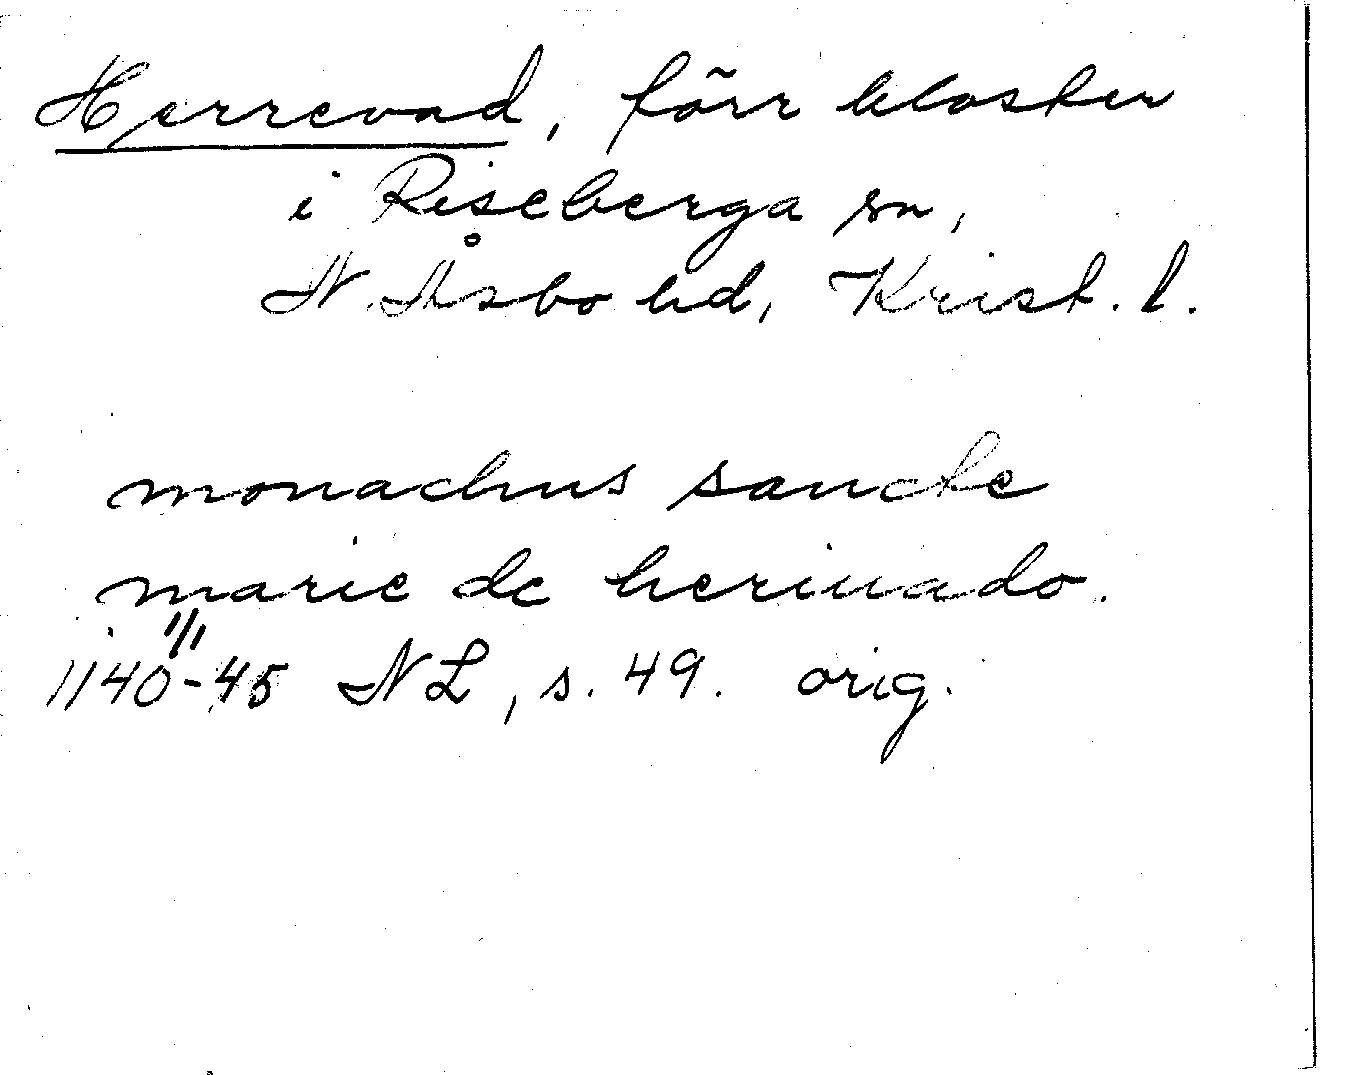 Herrevad, förr kloster
i Riseberga sn,
N. Åsbo hd, Krist. l.
monachus sancte
marie de heriuado.
1/1
1140-45 NL, s. 49. orig.